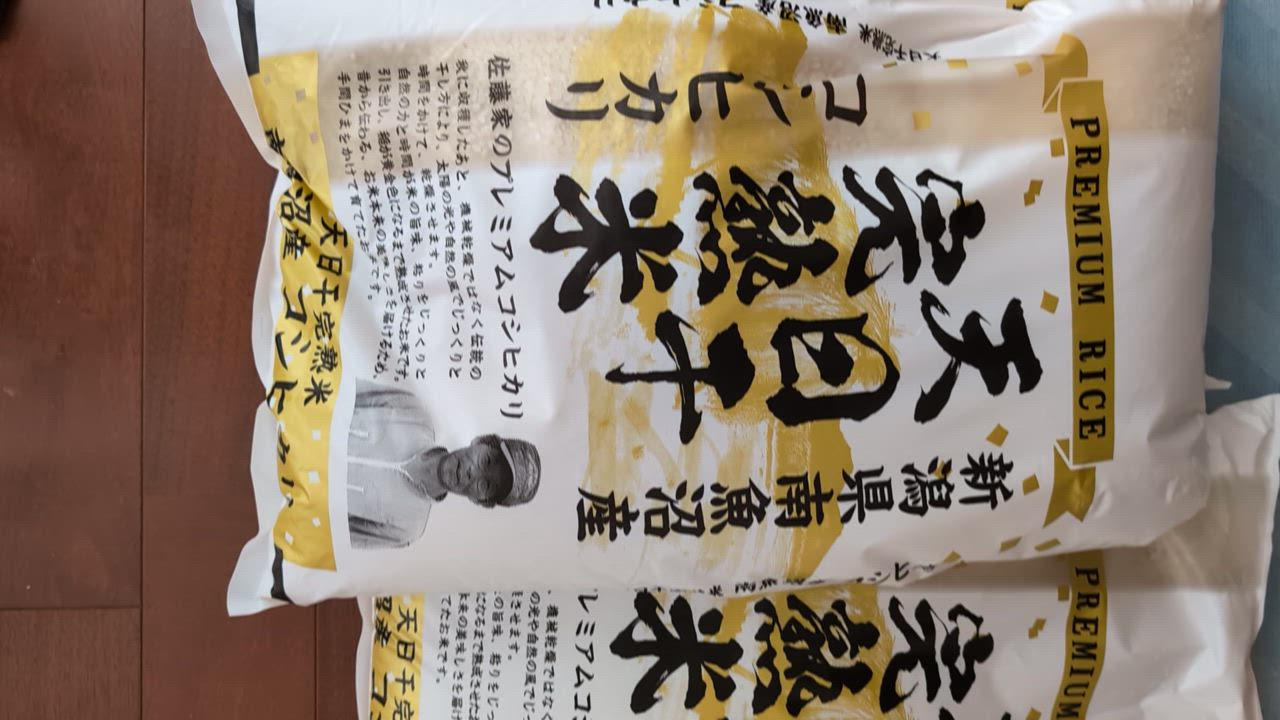 PREMIUM RICE
新潟県南魚沼産
天日干
完熟米
コシヒカリ
佐藤家のプレミアムコシヒカリ
秋に収穫したあと、機械乾燥ではなく伝統の
干し方により、太陽の光や自然の風でじっくりと
時間をかけて、乾燥させます。
自然の力と時間が米の旨味、粘りをじっくりと
引き出し、稲が黄金色になるまで熟成させたお米です。
昔から伝わる、お米本来の美味しさを届けるため、
手間ひまをかけて育てたお米です。
天日干完熟米
沼産 コシヒカリ
PREMIUM
完
熟米
レミアムコシ
、機械乾燥ではなく
の光や自然の風でじっ
させます。
の旨味、粘りをじっ
になるまで熟成させた
本来の美味しさを届け
てたお米です。
天日干完
沼産 コ